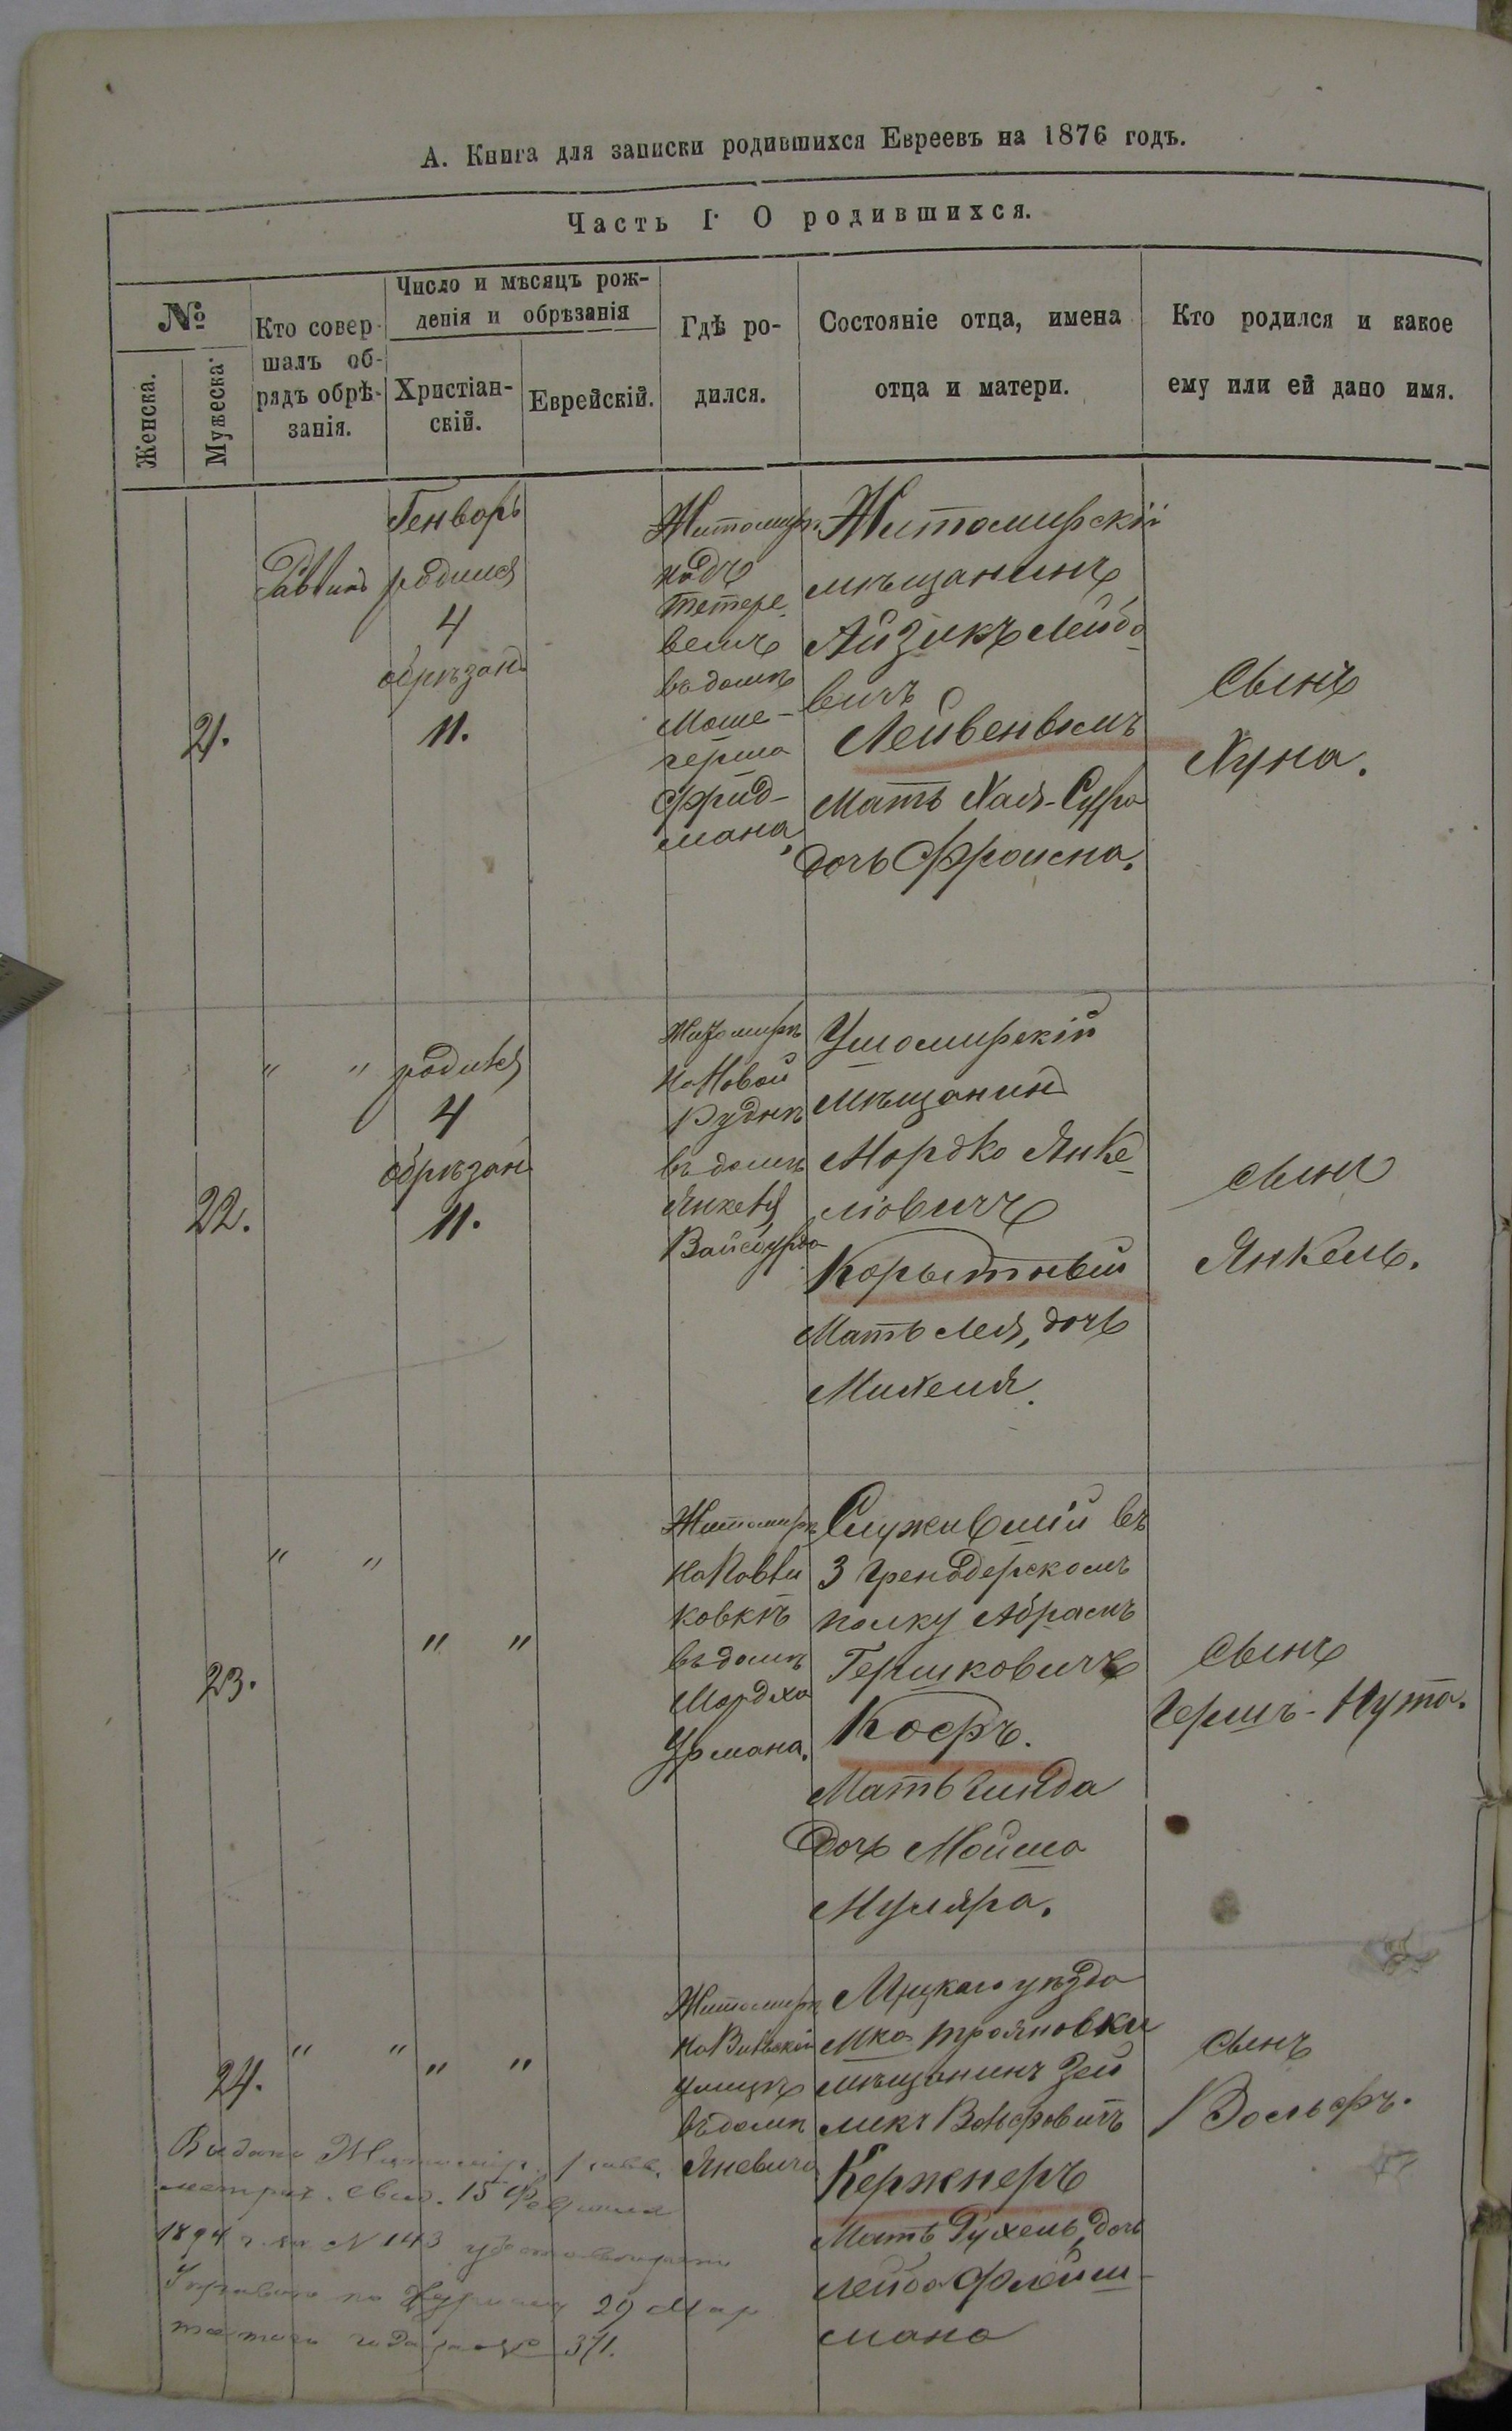 А. Книга для записки родившихся Евреевъ на 1876 годъ.
Часть I. О родившихся.
№
Женска.
Мужеска
Кто совер-
шалъ об-
рядъ обрѣ-
занія.
Число и мѣсяцъ рож-
денія и обрѣзанія
Христіан-
скій.
Еврейскій.
Гдѣ ро-
дился.
Состояніе отца, имена
отца и матери.
Кто родился и какое
ему или ей дано имя.
21.
Раввинъ
Генворь
родился
4
обрѣзанъ
11.
Житомирѣ
надъ
Тетере
вемъ
въ домѣ
Моше-
герша
Фрид-
мана,
Житомирскій
мѣщанинъ
Айзикъ Лейбо
вичъ
Лейвенвемъ
Мать Хая-Сура
дочь Фроисна.
Сынъ
Хуна.
22.
" "
родился
4
обрѣзанъ
11.
Житомирѣ
на Новой
Руднѣ
въ домѣ
Янкеля
Вайсбурда
Ушомирскій
мѣщанинъ
Мордко Янке
лёвичъ
Корытный
Мать Лея, дочь
Михеля.
сынъ
Янкель.
23.
" "
" "
Житомирѣ
на Павли
ковкѣ
въ домѣ
Мордха
Урмана.
Служившій въ
3 Гренадерскомъ
полку Абрамъ
Гершковичъ
Коеръ.
Мать Гинда
дочь Мойша
Муляра.
Сынъ
Гершъ-Нута.
24.
" "
" "
Житомирѣ
на Вильской
улицѣ
въ домѣ
Яневича
уѣзда
Мка Трояновки
мѣщанинъ Зей
ликъ Вольфовичъ
Кержнеръ
Мать Рухель, дочь
Лейба Флейш-
мана
Сынъ
Вольфъ.
Видано Житомир.
метрич. свид. 15
1894 г. за № 143
по 29 Мар
та года за № 371.